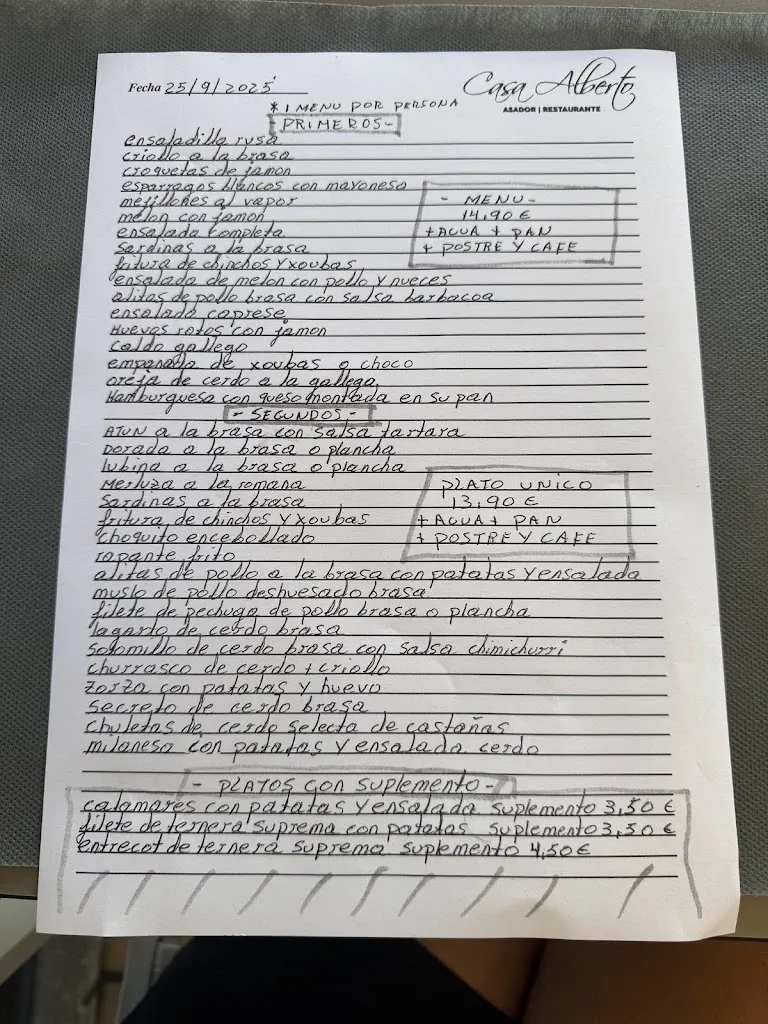 Fecha 25/9/2025
Casa Alberto
ASADOR | RESTAURANTE
* 1 MENU POR PERSONA
- PRIMEROS -
ensaladilla rusa
criollo a la brasa
croquetas de jamon
esparragos blancos con mayonesa
mejillones al vapor
melon con jamon
ensalada completa
sardinas a la brasa
fritura de chinchos y xoubas
ensalada de melon con pollo y nueces
alitas de pollo brasa con salsa barbacoa
ensalada caprese
Huevos rotos con jamon
caldo gallego
empanada de xoubas o choco
oreja de cerdo a la gallega
Hamburguesa con queso montada en su pan
- MENU -
14,90 €
+ AGUA + PAN
+ POSTRE Y CAFE
- SEGUNDOS -
ATUN a la brasa con salsa tartara
Dorada a la brasa o plancha
lubina a la brasa o plancha
Merluza a la romana
Sardinas a la brasa
fritura de chinchos y xoubas
choquito encebollado
rapante frito
alitas de pollo a la brasa con patatas y ensalada
muslo de pollo deshuesado brasa
filete de pechuga de pollo brasa o plancha
lagarto de cerdo brasa
solomillo de cerdo brasa con salsa chimichurri
churrasco de cerdo + criollo
zorza con patatas y huevo
secreto de cerdo brasa
chuletas de cerdo selecta de castañas
milanesa con patatas y ensalada cerdo
PLATO UNICO
13,90 €
+ AGUA + PAN
+ POSTRE Y CAFE
- PLATOS CON SUPLEMENTO -
calamares con patatas y ensalada suplemento 3,50 €
filete de ternera suprema con patatas suplemento 3,50 €
entrecot de ternera suprema suplemento 4,50 €